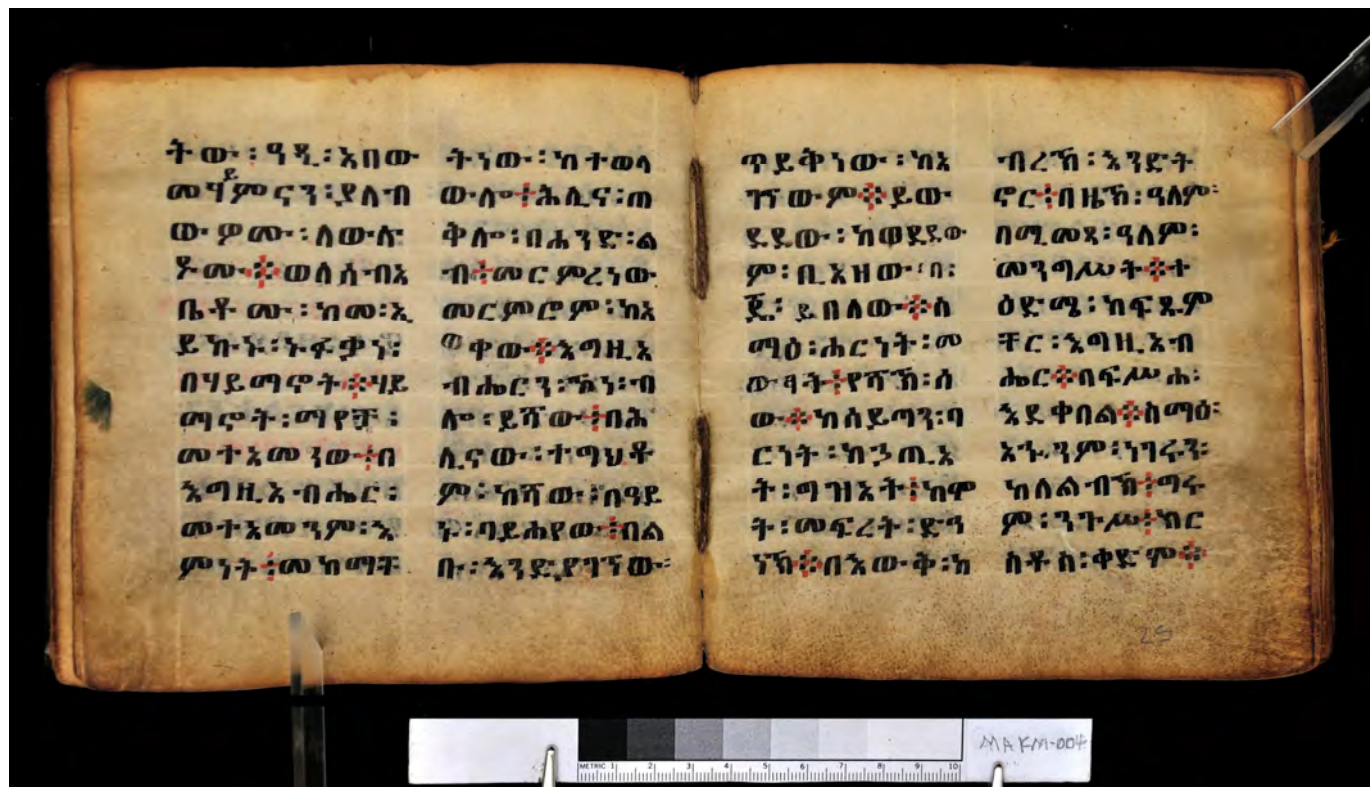 ትው፡ዓዲ፡አበው
መሃይምናን፡ያለብ
ውዎሙ፡ለውሉ
ዶሙ፨ወለሰብአ
ቤቶሙ፡ከመ፡ኢ
ይኩኑ፡ኑፋቃነ፡
በሃይማኖት፨ሃይ
ማኖት፡ማየቿ፡
መተአመንው፨በ
እግዚአብሔር፡
መተአመንም፡እ
ምነት፨መከማቸ
ትነው፡ከተወላ
ውሎ፨ሕሊና፡ጠ
ቅሎ፡በሐንድ፡ል
ብ፨መርምረነው
መርምሮም፡ከአ
ወቀው፨እግዚአ
ብሔርን፡ኹነ፡ብ
ሎ፡ይሻው፨በሕ
ሊናው፡ተግህዶ
ም፡ከሻው፡በዓይ
ኑ፡ባይሐየው፨በል
ቡ፡እንድያገኘው፡
ጥይቅነው፡ከአ
ገኘውም፨ይው
ደደው፡ከወደደው
ም፡ቢአዘው፡በ፡
ጄ፡ይበለው፨ስ
ማዕ፡ሐርነት፡መ
ውጣት፨የሻኸ፡ሰ
ው፨ከሰይጣን፡ባ
ርነት፡ከኃጢአ
ት፡ግዝአት፨ከሞ
ት፡መፍረት፡ድኅ
ነኸ፨በእውቅ፡ከ
ብረኸ፡እንድት
ኖር፨በዜኸ፡ዓለም፡
በሚመጻ፡ዓለም፡
መንግሥት፨ተ
ዕድሜ፡ከፍጹም
ቸር፡እግዚአብ
ሔር፨በፍሥሐ፡
እደቀበል፨ስማዕ፡
አኁንም፡ነገሩን፡
ከለልብኸ፨ማሩ
ም፡ንጉሥ፨ክር
ስቶስ፡ቀድም፨
25
METRIC 1 2 3 4 5 6 7 8 9 10
MAKM-004